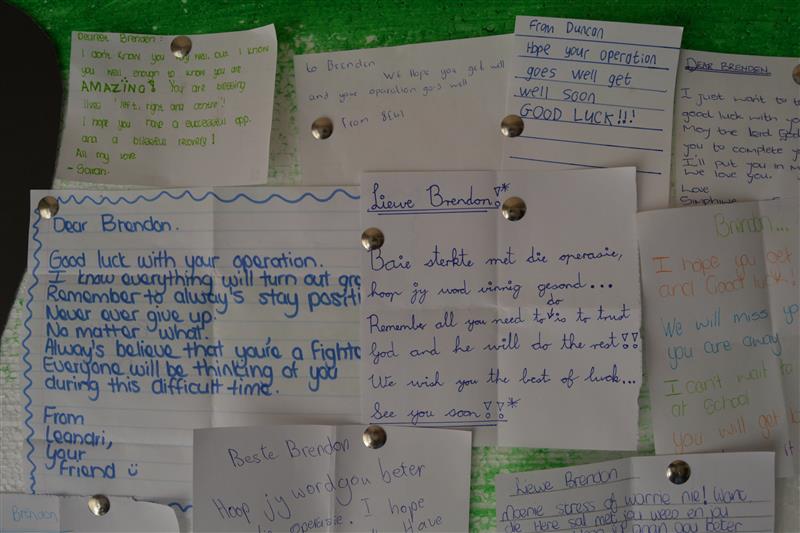 Dearest Brenden:
I don't know you very well, but I know
you well enough to know you are
AMAZING! You are blessing
lives 'left, right and centre'!
I hope you have a successful opp.
and a blissful recovery!
All my love
- Sarah.
to Brenden
We Hope you get well
and your operation goes well
From 8EW1
From Duncan
Hope your operation
goes well get
well soon
GOOD LUCK!!!
DEAR BRENDEN
I just want to
good luck with yo
May the Lord God
you to complete yo
I'll put you in m
We love you.
Love
Simphiwe
Dear Brendon.
Good luck with your operation.
I know everything will turn out gre
Remember to alway's stay positi
Never ever give up.
No matter what.
Alway's believe that you're a fighte
Everyone will be thinking of you
during this difficult time.
From
Leandri,
your
friend
Liewe Brendon!*
Baie sterkte met die operasie,
hoop jy word vinnig gesond...
Remember all you need to do is to trust
God and he will do the rest!!
We wish you the best of luck...
See you soon!!*
Brendon...
I hope you get
and Good luck!
We will miss yo
you are away
I can't wait to
at School
you will get b
it
Beste Brendon
Hoop jy word gou beter
operasie. I hope
Have
Liewe Brendon
Moenie stress of worrie nie! Want
die Here sal met jou wees en jou
gou beter
Brendon